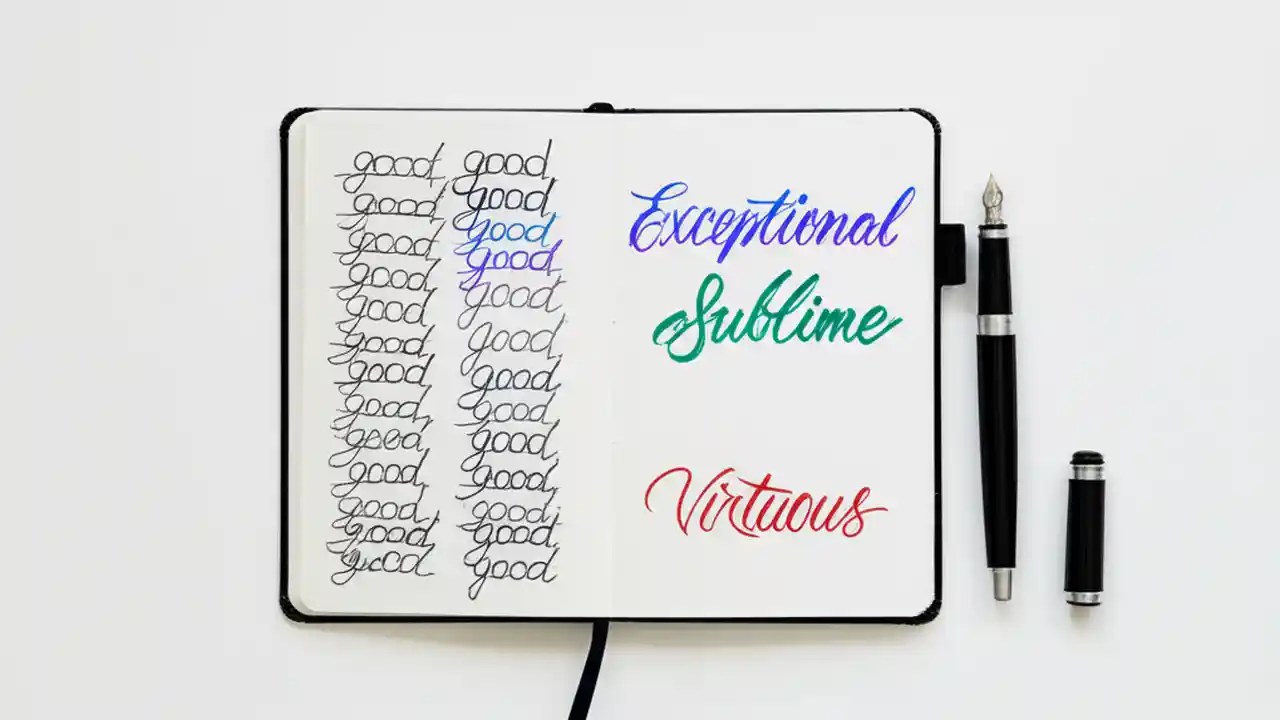 good, good,
good, good,
good, good,
good, good,
good, good
good, good
good, good,
good, good,
geed good,
good, good,
good, good,
good, good,
gccd good
Exceptional
Sublime
Virtuous